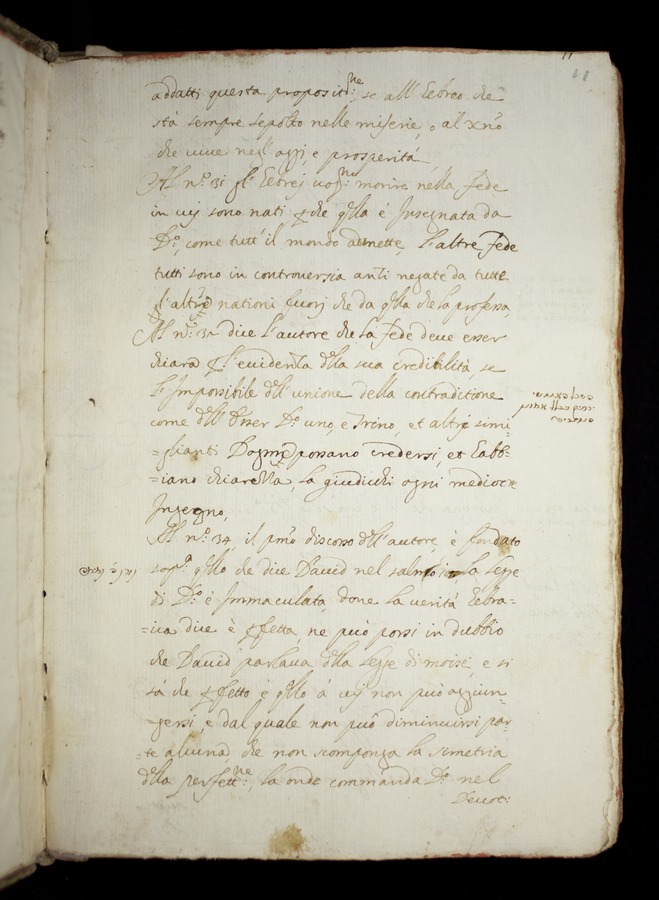 11
addatti questa propositne: se all' Eebreo che
stà sempre sepolto nelle miserie, o al xño
che vive negl' aggi, e prosperità
Al n.º 31 gl' Eebrej vogl: morire nella fede
in cuj sono nati, che qlla è Insegnata da
D.º, come tutt' il mondo admette, l'altre fede
tutti sono in controversia anzi negate da tutte
l'altre nationi fuorj che da qlla che la professa,
Al n.º 32 dice l'autore che la fede deve esser
chiara l'evidenza dlla sua credibilità, se
l'Impossibile dll' unione della contraditione
come dll' Esser D.º uno, e Trino, et altrj simi=
=glianti Dogmi possano credersi, et habb=
=iano chiarezza, la giudichi ogni mediocre
Ingegno,
Al n.º 34 il pmo discorso dll' autore, è fondato
sop.ª qllo che dice David nel salmo la legge
di D.º è Immaculata, doue la verità Eebra=
=ica dice è pfetta, ne può porsi in dubbio
che David parlava dlla legge di moise, e si
sà che pfetto è qllo à cuj non può aggiun=
gersi, e dal quale non può diminuirsi par=
=te alcuna, che non scomponga la simetria
dlla perfettne:, la onde commanda D.º nel
Deuot: